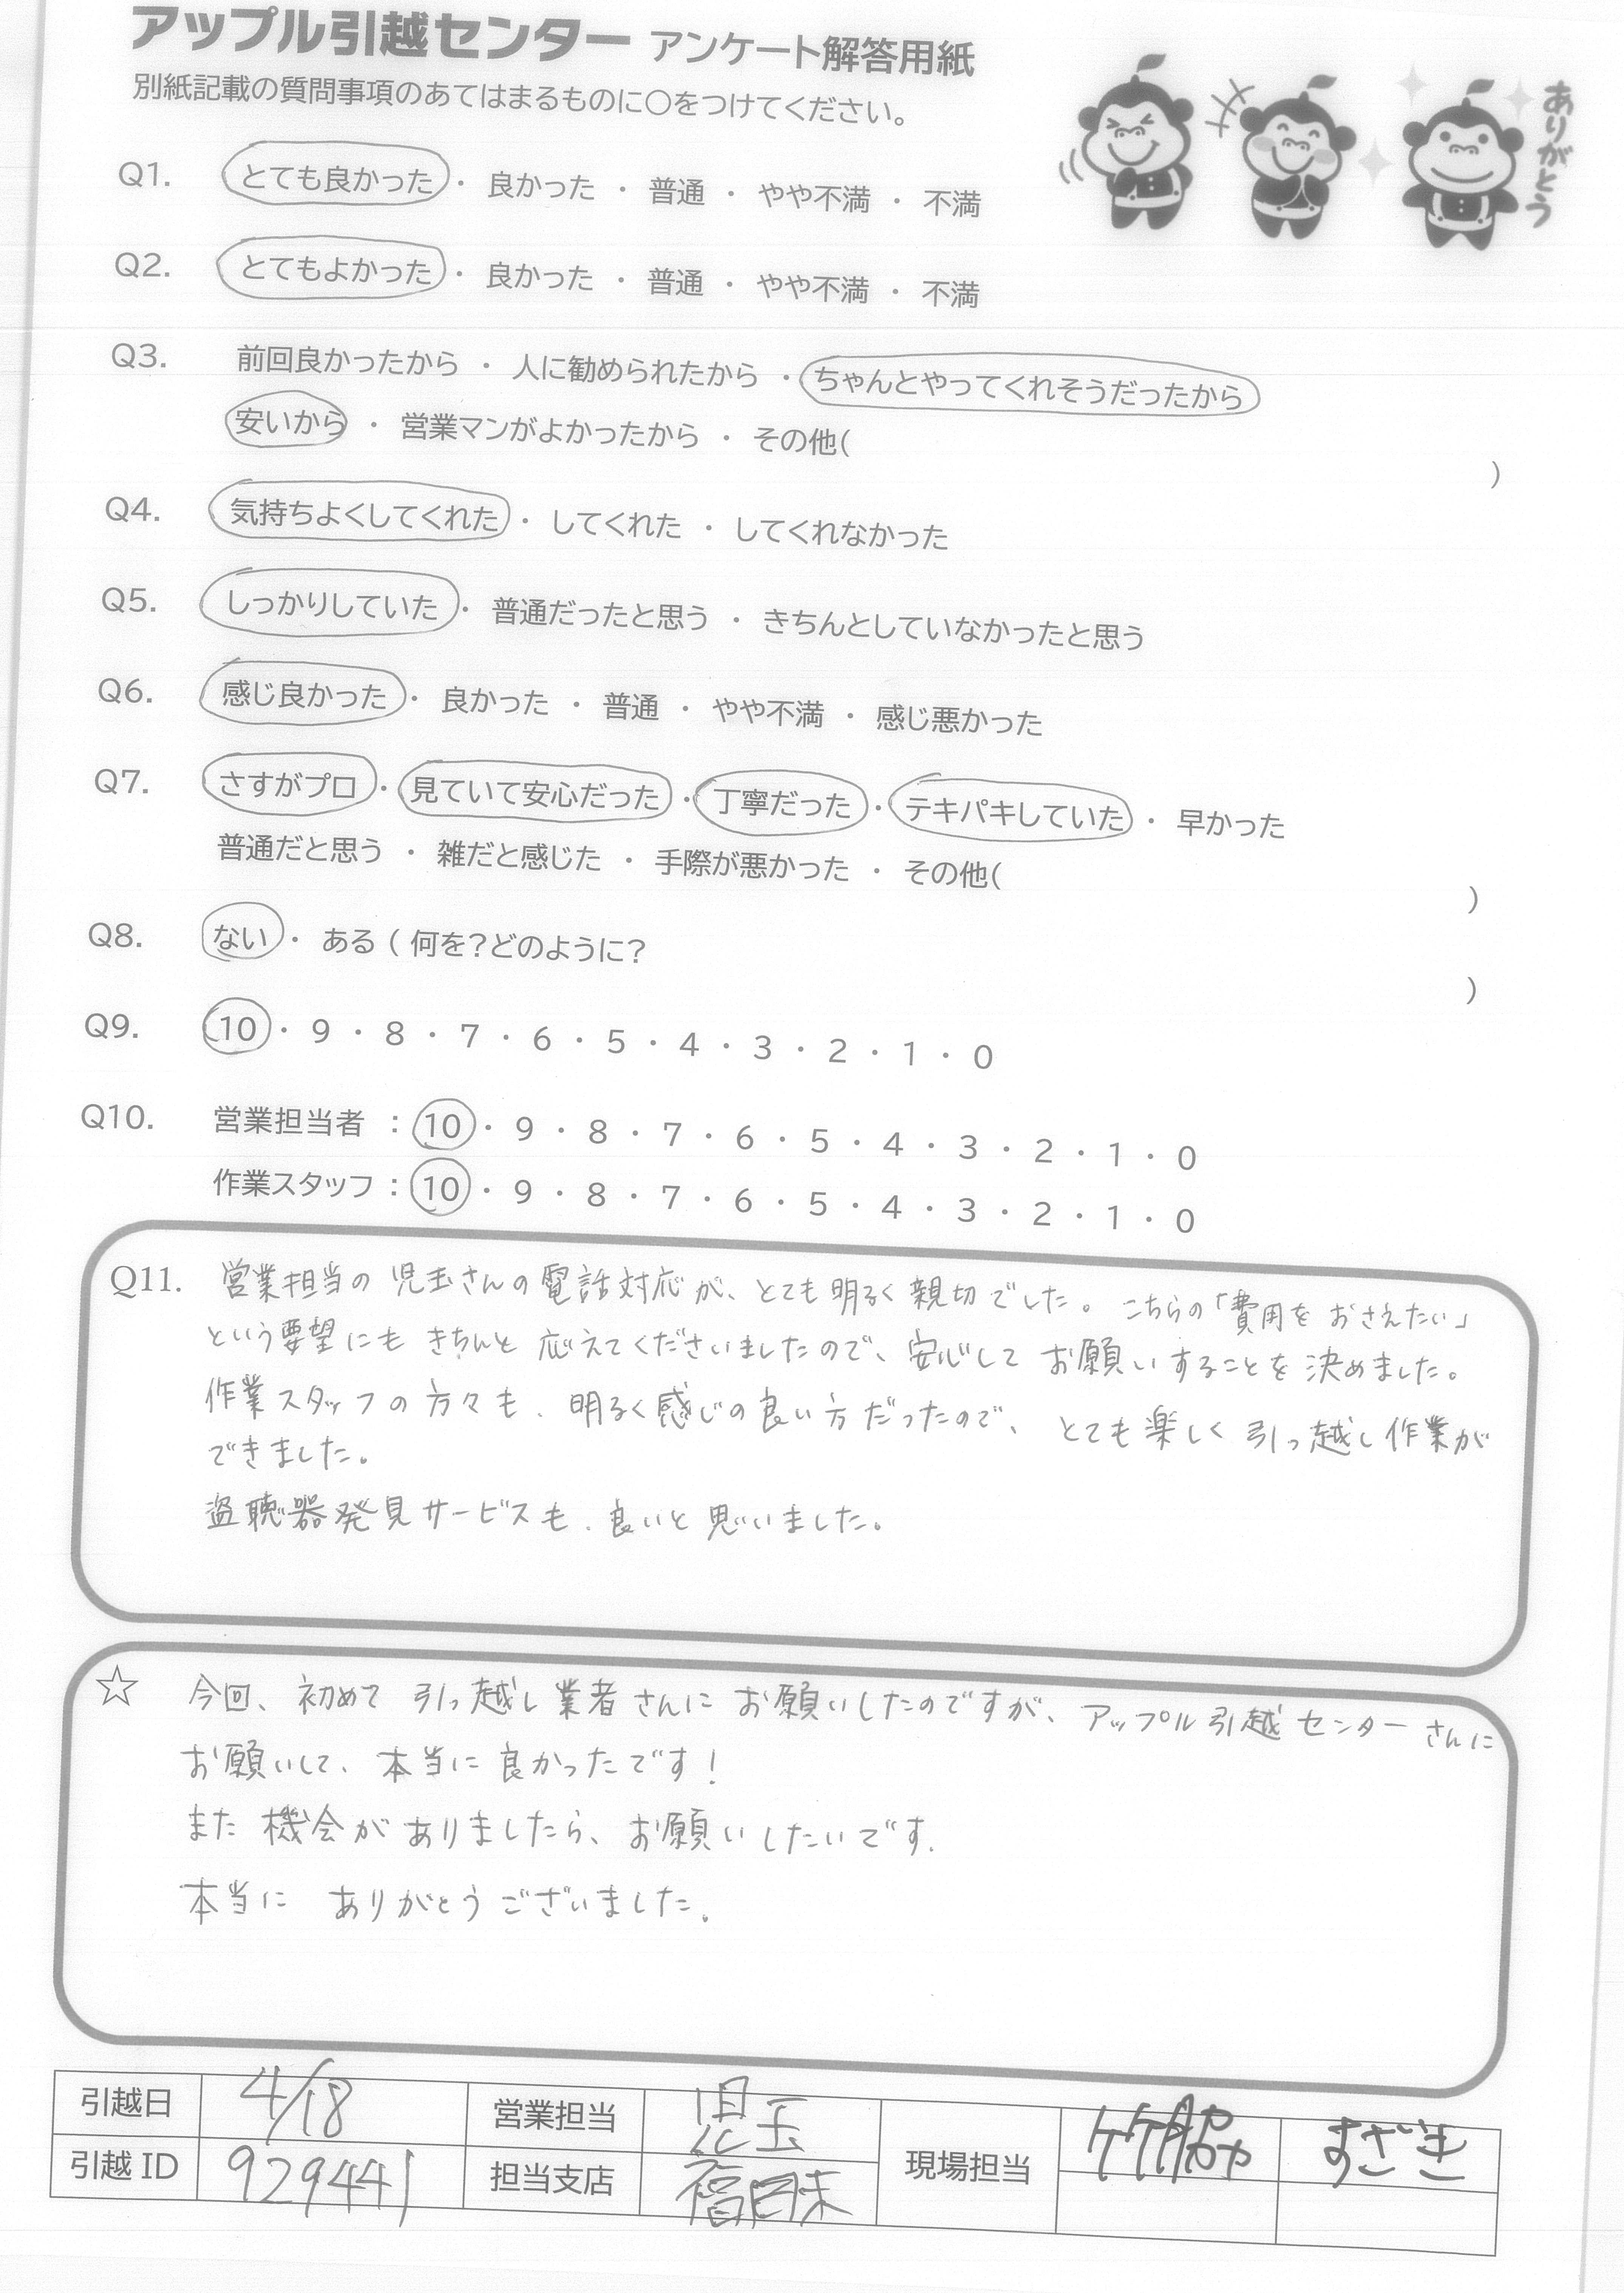 アップル引越センター アンケート解答用紙
別紙記載の質問事項のあてはまるものに○をつけてください。
ありがとう
Q1. とても良かった ・ 良かった ・ 普通 ・ やや不満 ・ 不満
Q2. とてもよかった ・ 良かった ・ 普通 ・ やや不満 ・ 不満
Q3. 前回良かったから ・ 人に勧められたから ・ ちゃんとやってくれそうだったから
安いから ・ 営業マンがよかったから ・ その他( )
Q4. 気持ちよくしてくれた ・ してくれた ・ してくれなかった
Q5. しっかりしていた ・ 普通だったと思う ・ きちんとしていなかったと思う
Q6. 感じ良かった ・ 良かった ・ 普通 ・ やや不満 ・ 感じ悪かった
Q7. さすがプロ ・ 見ていて安心だった ・ 丁寧だった ・ テキパキしていた ・ 早かった
普通だと思う ・ 雑だと感じた ・ 手際が悪かった ・ その他( )
Q8. ない ・ ある ( 何を?どのように? )
Q9. 10 ・ 9 ・ 8 ・ 7 ・ 6 ・ 5 ・ 4 ・ 3 ・ 2 ・ 1 ・ 0
Q10. 営業担当者 : 10 ・ 9 ・ 8 ・ 7 ・ 6 ・ 5 ・ 4 ・ 3 ・ 2 ・ 1 ・ 0
作業スタッフ : 10 ・ 9 ・ 8 ・ 7 ・ 6 ・ 5 ・ 4 ・ 3 ・ 2 ・ 1 ・ 0
Q11. 営業担当の児玉さんの電話対応が、とても明るく親切でした。こちらの「費用をおさえたい」
という要望にもきちんと応えてくださいましたので、安心してお願いすることを決めました。
作業スタッフの方々も、明るく感じの良い方だったので、とても楽しく引っ越し作業が
できました。
盗聴器発見サービスも、良いと思いました。
☆ 今回、初めて引っ越し業者さんにお願いしたのですが、アップル引越センターさんに
お願いして、本当に良かったです!
また機会がありましたら、お願いしたいです.
本当に ありがとうございました.
引越日 4/18 営業担当 児玉 現場担当 竹脇 すざき
引越ID 929441 担当支店 福岡東